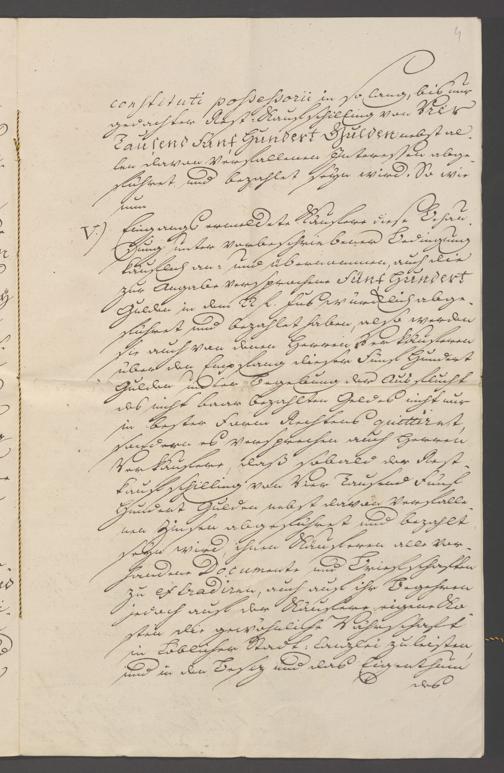 4
constituti possessorii in so lang, bis nur
gedachter Rest Kaufschilling von Vier
Tausend Fünf Hundert Gulden nebst al-
len davon verfallenen Interessen abge-
führet, und bezahlet seyn wird. So wie
nun
V.) Eingangs ermeldete Käufere diese Behau-
sung unter vorbeschriebener Bedingung
käuflich an- und übernommen, auch die
zur Angabe versprochene Fünf Hundert
Gulden in dem fl. Fus würcklich abge-
führet und bezahlet haben, also werden
sie auch von denen Herren Verkäuferen
über den Empfang dieser Fünf Hundert
Gulden unter Begebung der Ausflucht
des nicht baar bezahlten Geldes nicht nur
in bester Form Rechtens quittiret,
sondern es versprechen auch Herren
Verkäufere, daß sobald der Rest-
kaufschilling von Vier Tausend Fünf
Hundert Gulden nebst davon verfalle-
nen Zinsen abgeführet und bezahlt
seyn wird, ihnen Käuferen alle vor-
handene Documente und Briefschaften
zu extradiren, auch auf ihr Begehren
jedoch auf der Käufere eigene Ko-
sten die gewöhnliche Währschaft
in Löblicher Stadt-Canzlei zu leisten
und in den Besiz und das Eigenthum
des